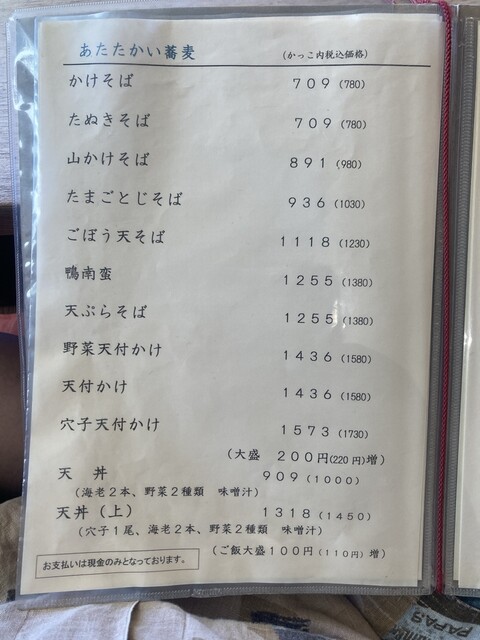 あたたかい蕎麦 (かっこ内税込価格)
かけそば 709 (780)
たぬきそば 709 (780)
山かけそば 891 (980)
たまごとじそば 936 (1030)
ごぼう天そば 1118 (1230)
鴨南蛮 1255 (1380)
天ぷらそば 1255 (1380)
野菜天付かけ 1436 (1580)
天付かけ 1436 (1580)
穴子天付かけ 1573 (1730)
(大盛 200円(220円)増)
天 丼 909 (1000)
(海老2本、野菜2種類 味噌汁)
天丼(上) 1318 (1450)
(穴子1尾、海老2本、野菜2種類 味噌汁)
(ご飯大盛100円(110円)増)
お支払いは現金のみとなっております。
PAPAS